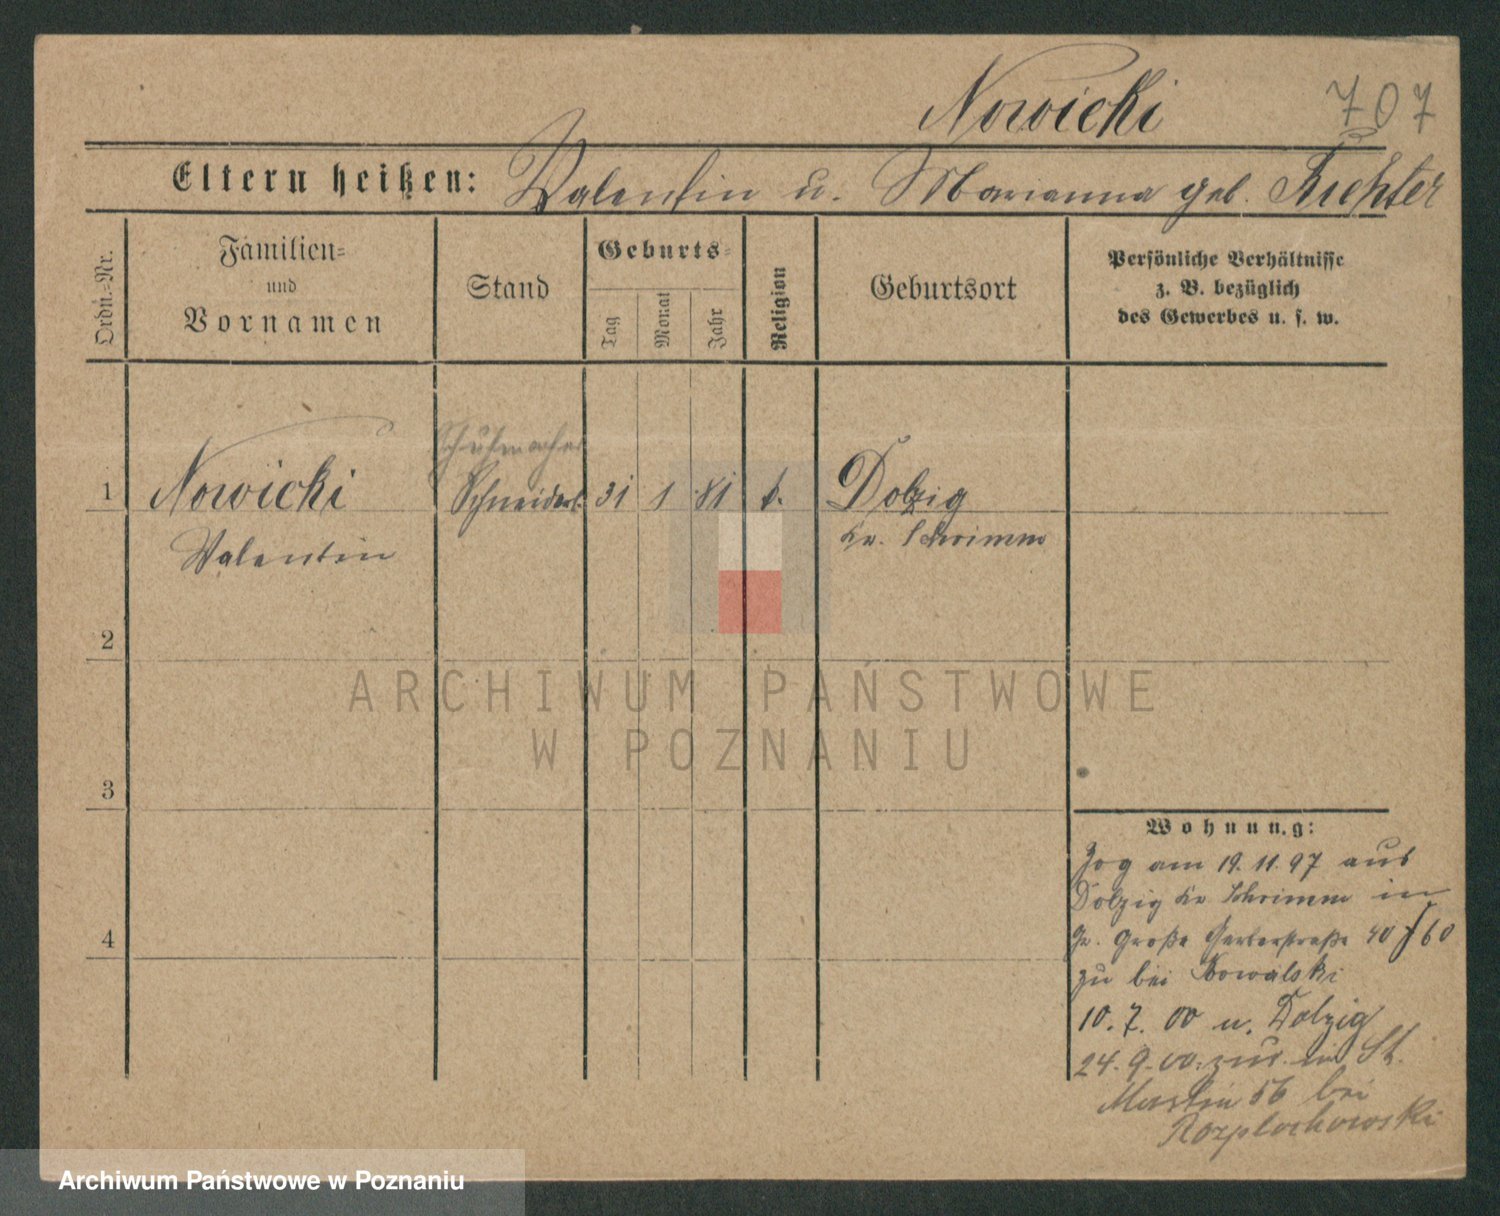 Nowicki 707
Eltern heißen: Valentin u. Marianna geb. Richter
Ordn.-Nr.
Familien-
und
Vornamen
Stand
Geburts-
Tag
Monat
Jahr
Religion
Geburtsort
Persönliche Verhältnisse
z. B. bezüglich
des Gewerbes u. s. w.
Schuhmacher
1 Nowicki Schneiderl. 31 1 81 k. Dolzig
Valentin Kr. Schrimm
2
3
4
Wohnung:
Zog am 19.11.97 aus
Dolzig Kr Schrimm in
Große Gerberstraße 40 60
zu bei Kowalski
10. 7. 00 n. Dolzig
24. 9. 00. zur. in St.
Martin 56 bei
Rozplochowski
ARCHIWUM PAŃSTWOWE
W POZNANIU
Archiwum Państwowe w Poznaniu